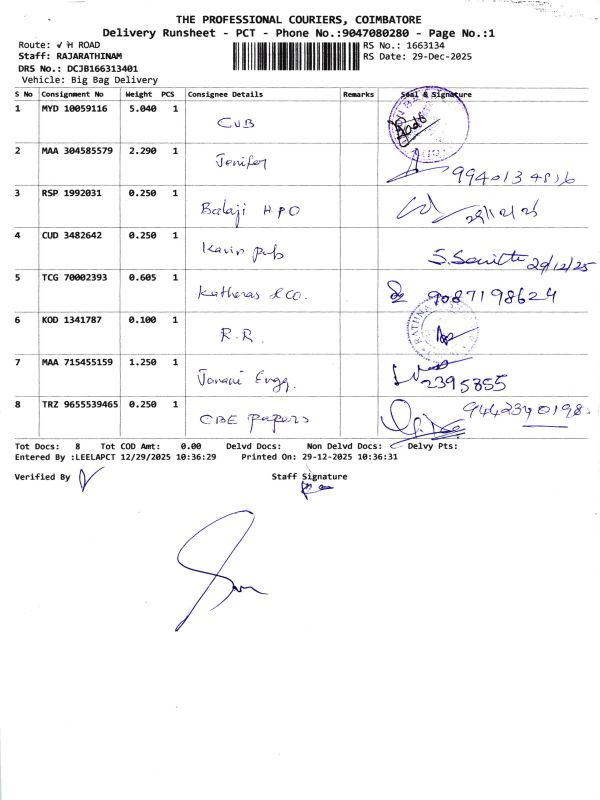 THE PROFESSIONAL COURIERS, COIMBATORE
Delivery Runsheet - PCT - Phone No.:9047080280 - Page No.:1
Route: V H ROAD
RS No.: 1663134
Staff: RAJARATHINAM
RS Date: 29-Dec-2025
DRS No.: DCJB166313401
Vehicle: Big Bag Delivery
S No Consignment No Weight PCS Consignee Details Remarks Seal & Signature
1 MYD 10059116 5.040 1 CUB
2 MAA 304585579 2.290 1 Jenifer
3 RSP 1992031 0.250 1 Balaji H P O
4 CUD 3482642 0.250 1 Kavin pub 29/12/25
5 TCG 70002393 0.605 1 Katheras & co. 9087198624
6 KOD 1341787 0.100 1 R.R.
7 MAA 715455159 1.250 1 Janani Engg. 2395855
8 TRZ 9655539465 0.250 1 CBE papers 9442340198
Tot Docs: 8 Tot COD Amt: 0.00 Delvd Docs: Non Delvd Docs: Delvy Pts:
Entered By :LEELAPCT 12/29/2025 10:36:29 Printed On: 29-12-2025 10:36:31
Verified By Staff Signature